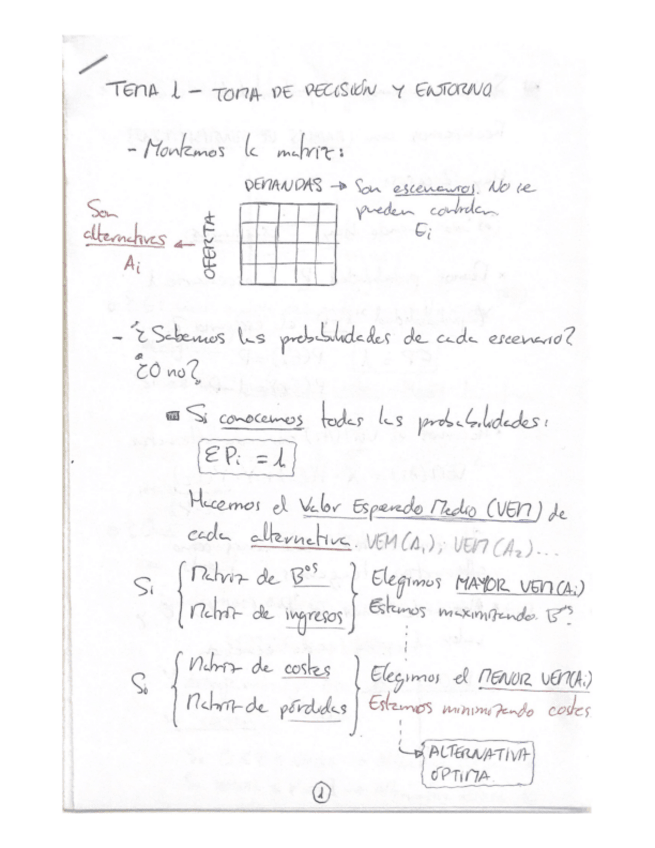 TEMA 1 - TOMA DE DECISIÓN Y ENTORNO
- Montamos la matriz:
DEMANDAS → Son escenarios. No se
pueden controlar
Ei
Son
alternativas ←
Ai
OFERTA
- ¿Sabemos las probabilidades de cada escenario?
¿O no?
Si conocemos todas las probabilidades:
ΣPi = 1
Hacemos el Valor Esperado Medio (VEM) de
cada alternativa. VEM(A1); VEM(A2)...
Si { Matriz de Bos } Elegimos MAYOR VEM(Ai)
Matriz de ingresos Estamos maximizando Bos.
Si { Matriz de costes } Elegimos el MENOR VEM(Ai)
Matriz de pérdidas Estamos minimizando costes
ALTERNATIVA
ÓPTIMA.
1